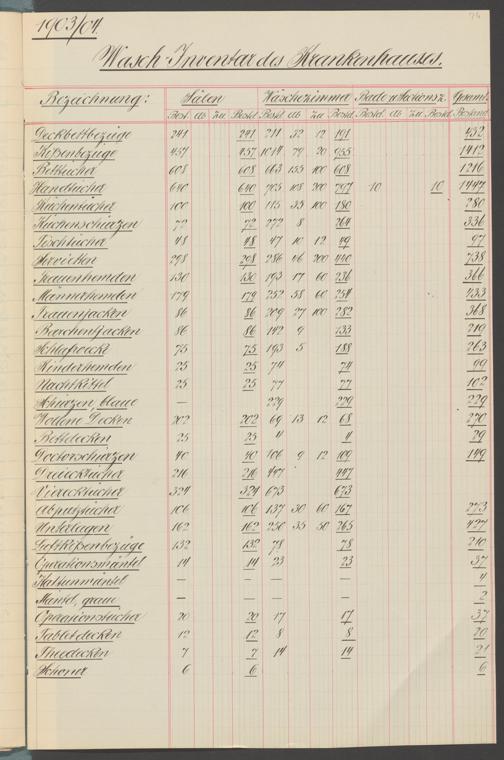 74
1903/04.
Wasch-Inventar des Krankenhauses.
Bezeichnung: Sälen Wäschezimmer Bade u. Gesamt
Best. ab zu Bestd Bestd ab zu Bestd Bestd ab zu Bestd Bestand
Deckbettbezüge 241 241 211 32 12 191 432
Kißenbezüge 457 457 1014 79 20 955 1412
Betttücher 608 608 663 155 100 608 1216
Handtücher 640 640 705 108 200 797 10 10 1447
Küchentücher 100 100 115 35 100 180 280
Küchenschürzen 72 72 272 8 264 336
Tischtücher 48 48 47 10 12 49 97
Servietten 298 298 286 46 200 440 738
Frauenhemden 130 130 193 17 60 236 366
Männerhemden 179 179 252 58 60 254 433
Frauenjacken 86 86 209 27 100 282 368
Burschenjacken 86 86 142 9 133 219
Schlafröcke 75 75 193 5 188 263
Kinderhemden 25 25 74 74 99
Nachtkittel 25 25 77 77 102
Schürzen, blaue — 229 229 229
Wollene Decken 202 202 69 13 12 68 270
Bettdecken 25 25 4 4 29
Doctorschürzen 40 40 106 9 12 109 149
Dreiecktücher 216 216 447 447
Vierecktücher 324 324 673 673
Abputztücher 106 106 137 30 60 167 273
Unterlagen 162 162 250 35 50 265 427
132 132 78 78 210
Operationsmäntel 14 14 23 23 37
— — — — 4
Mäntel, graue — — — — 2
Operationstücher 20 20 17 17 37
Tabletdecken 12 12 8 8 20
Theedecken 7 7 14 14 21
Schoner 6 6 6